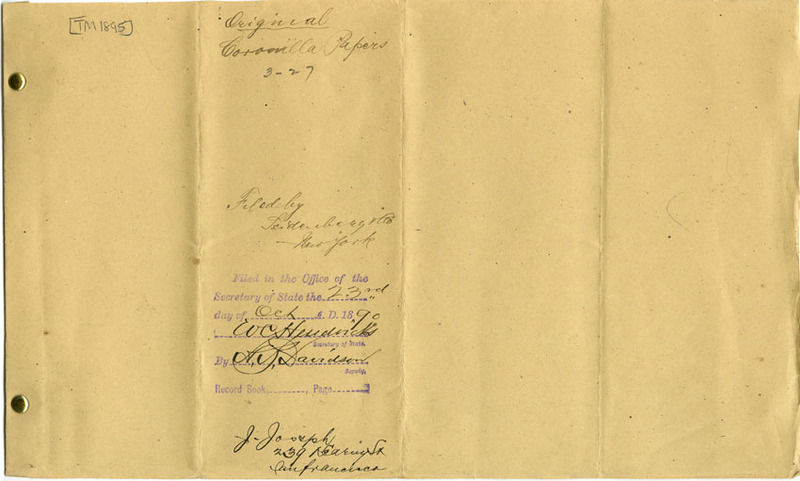 [TM 1895]
Original
Coronilla Papers
3-27
Filed by
Seidenberg & Co
New York
Filed in the Office of the
Secretary of State the 23rd
day of Oct A. D. 1890
W C Hendricks
Secretary of State.
By A. J. Davidson
Deputy.
Record Book, , Page
J. Joseph
239 Kearny St
San Francisco